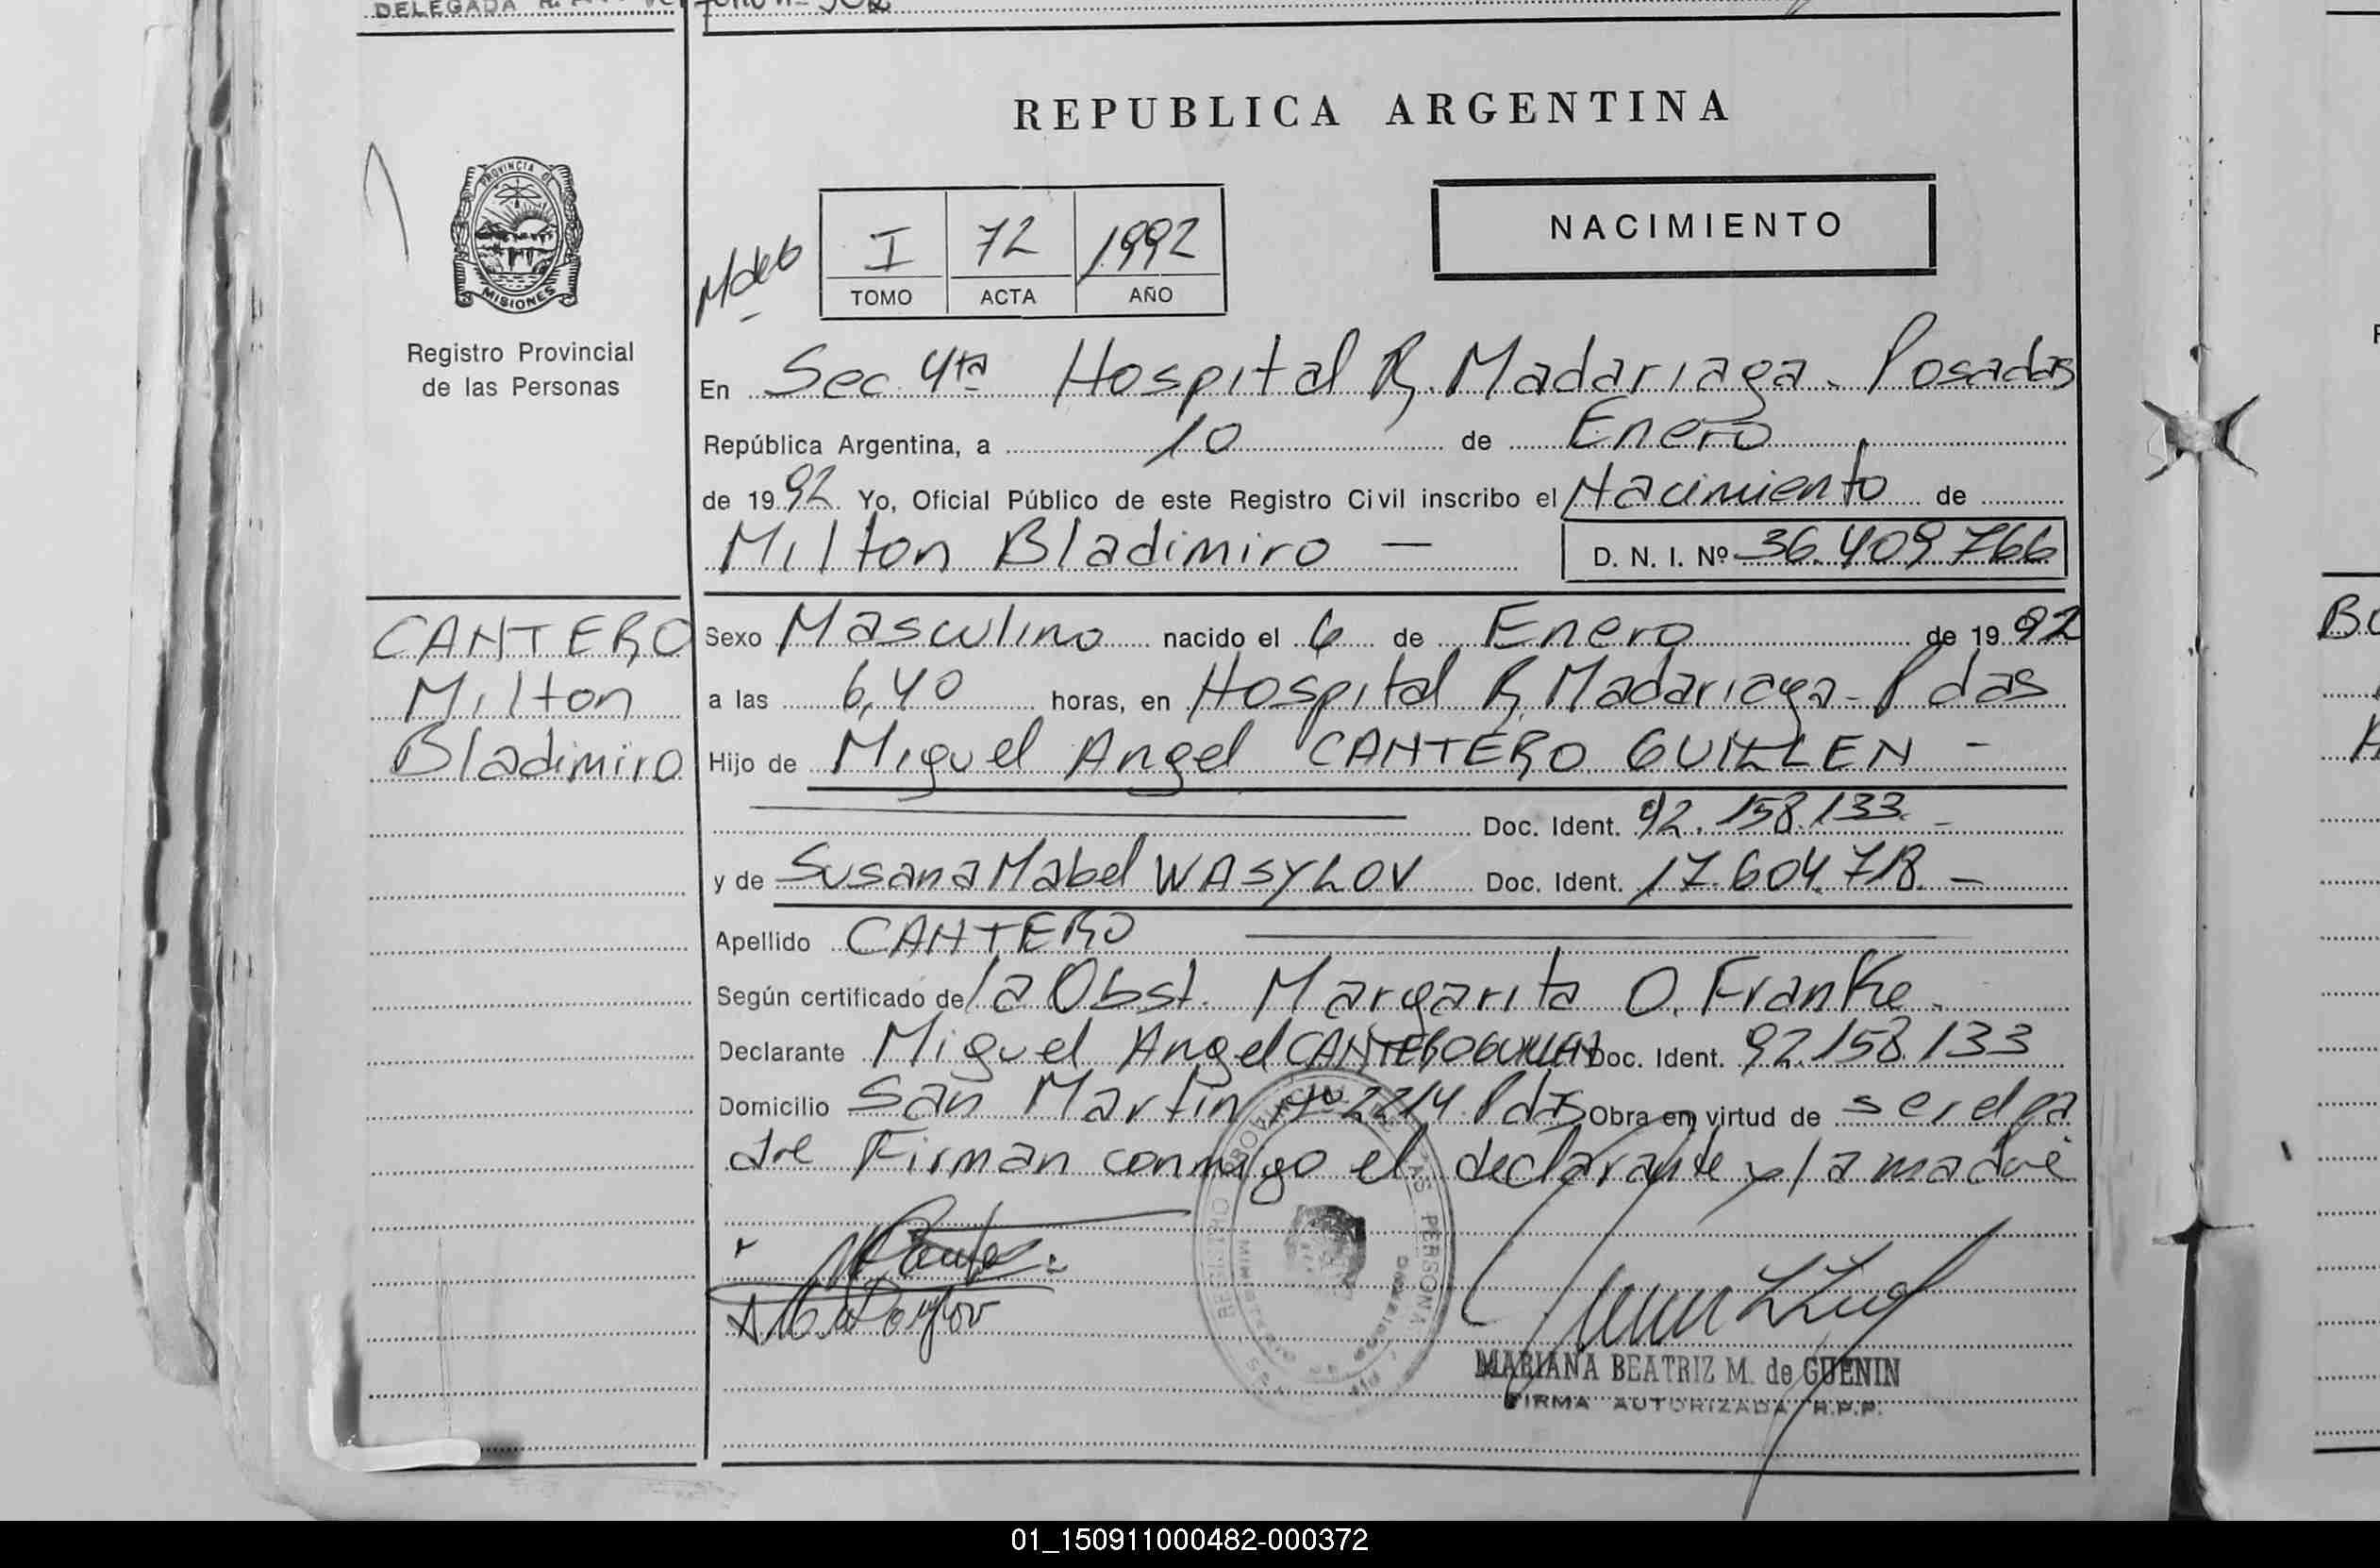 DELEGADA
REPUBLICA ARGENTINA
PROVINCIA DE
MISIONES
Registro Provincial
de las Personas
I 72 1992
TOMO ACTA AÑO
NACIMIENTO
En Sec. 4ta Hospital R. Madariaga - Posadas
República Argentina, a 10 de Enero
de 1992 Yo, Oficial Público de este Registro Civil inscribo el Nacimiento de
Milton Bladimiro — D. N. I. Nº 36.409.766
CANTERO
Milton
Bladimiro
Sexo Masculino nacido el 6 de Enero de 1992
a las 6,40 horas, en Hospital R. Madariaga - Pdas
Hijo de Miguel Angel CANTERO GUILLEN -
Doc. Ident. 92.158.133. -
y de Susana Mabel WASYLOV Doc. Ident. 17.604.718. -
Apellido CANTERO
Según certificado de la Obst. Margarita O. Franke.
Declarante Miguel Angel CANTERO GUILLEN Doc. Ident. 92.158.133
Domicilio San Martin Nº 2214 Pdas Obra en virtud de ser el pa
dre Firman conmigo el declarante y la madre
MARIANA BEATRIZ M. de GUENIN
FIRMA AUTORIZADA R.P.P.
01_150911000482-000372